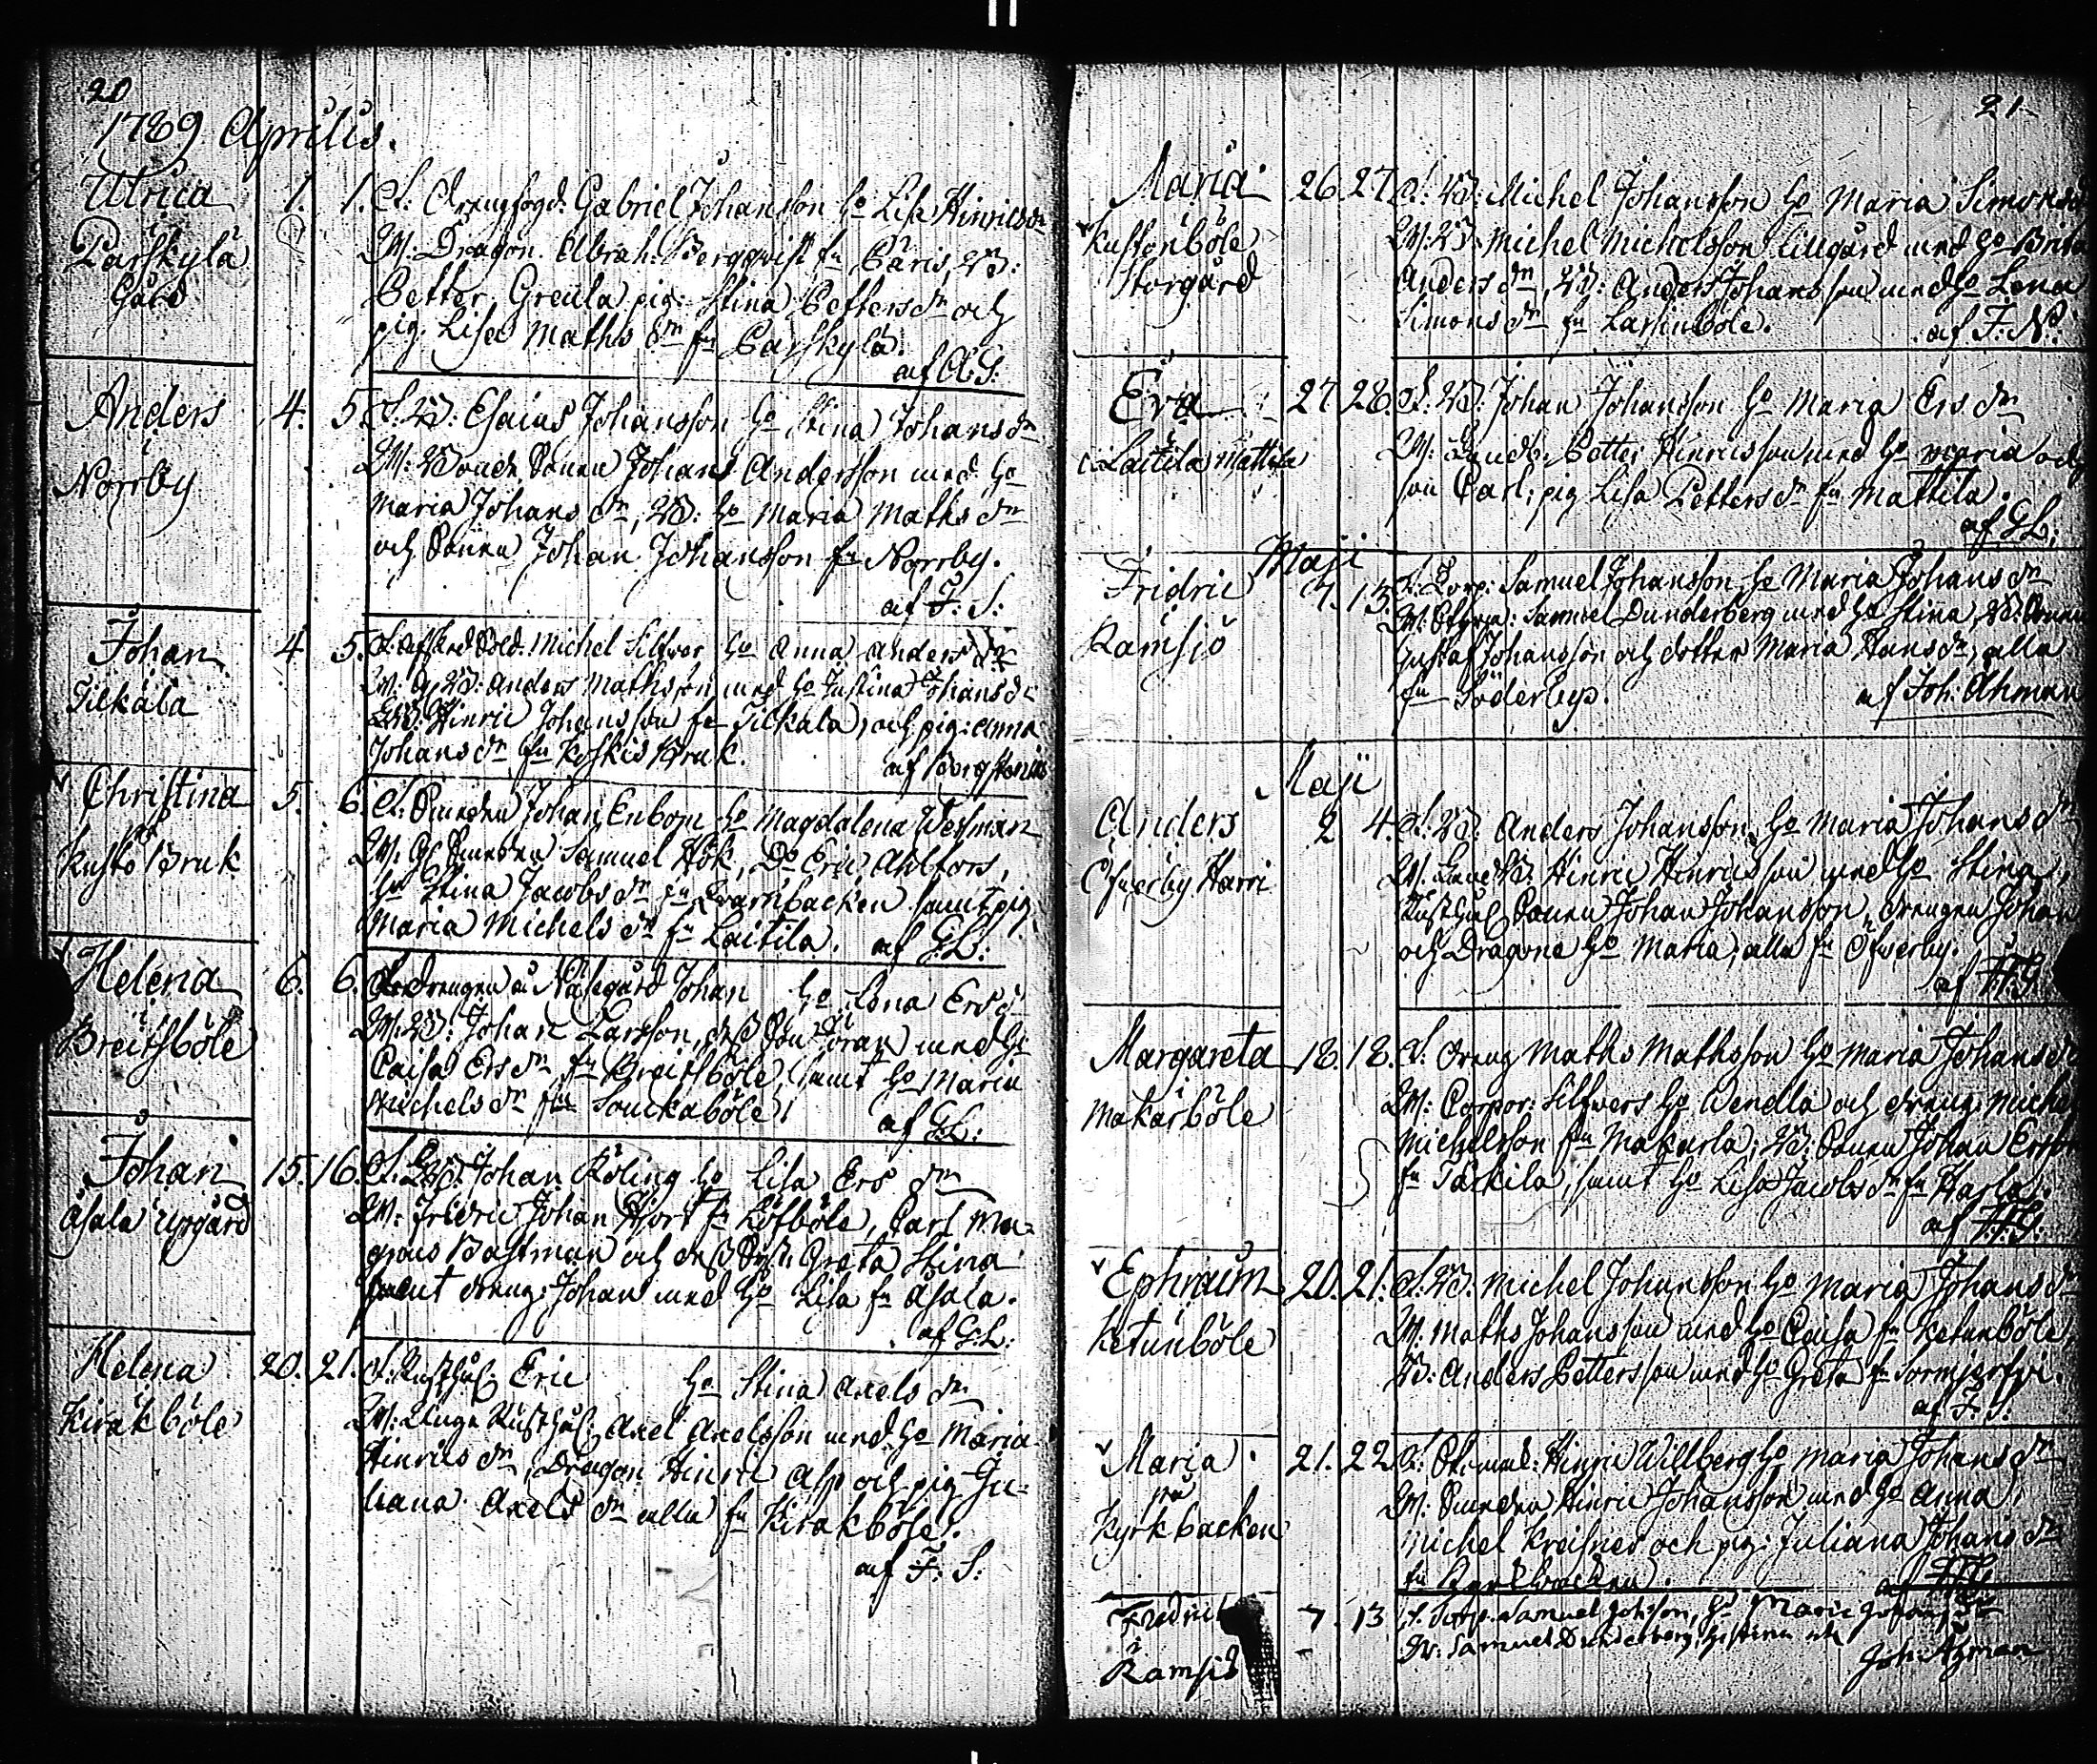 20
1789 Aprilis.
Ulrica
Pärskylä
Gård
1. 1. F: Drengfogd: Gabriel Johansson hu Lisa Hinricsdr
W: Dragon. Abrah: Bergqwist fn Päris, B:
Petter Greula pig: Stina Pettersdr och
pig. Lisa Mathsdr fn Parskylä.
af A: S:
Anders
i
Norrby
4. 5. F. B: Esaias Johansson hu Stina Johansdr
W: Bonde Sonen Johans Andersson med hu
Maria Johansdr, B: hu Maria Mathsdr
och Sonen Johan Johansson fn Norrby.
af F: S:
Johan
Tilkala
4. 5. F: Afsked Sold. Michel Silfwer hu Anna Andersdr
W: B: Anders Mathsson med hu Justina Johansdr
Hinric Johansson fn Tilkala, och pig: Anna
Johansdr fn Koskis Bruk.
af Borgstenius
Christina
på
Kusto Bruk
5. 6. F: Smeden Johan Enbom hu Magdalena Westman
W: Smeden Samuel Hök, Do Eric Ahlfors,
hu Stina Jacobsdr fn Qvarnbacken samt pig
Maria Michelsdr fn Laitila. af G:L:
Helena
i
Breitsböle
6. 6. F: Drengen å Näsegård Johan hu Lena Ersdr
W: B: Johan Larsson, dess Son Göran med hu
Caisa Ersdr fn Breitsböle, samt hu Maria
Michelsdr fn Souckaböle.
af G:L:
Johan
Åsala Uppgård
15. 16. F: Johan Köling hu Lisa Ersdr
W: Fridric Johan Hjort fn Löfböle, Carl Ma-
gnus Bastman och dess Syst: Greta Stina
samt dreng: Johan med hu Lisa fn Åsala.
af G:L:
Helena
Kirakböle
20. 21. F: Rusthål: Eric hu Stina Axelsdr
W: Unge Rusthål: Axel Axelsson med hu Maria
Hinricsdr, Dragon Hinric Alp och pig Ju-
liana Axelsdr alla fn Kirakböle.
af F: S:
21.
Maria
Kustonböle
Storgård
26. 27. F: B: Michel Johansson hu Maria Simonsdr
W: B: Michel Michelsson Lillgård med hu Brita
Andersdr, B: Anders Johansson med hu Lena
Simonsdr fn Lassinböle.
af F: N:
Eva
Laitila Mattila
27 28. F: B: Johan Johansson hu Maria Ersdr
W: Petter Hinricsson med hu Maria och
son Carl, pig Lisa Pettersdr fn Mattila.
af G:L:
Maji
Fridric
i
Ramsjö
7. 13. F: Torp: Samuel Johansson hu Maria Johansdr
W: Samuel Dunderberg med hu Stina, B: Sonen
Gustaf Johansson och dotter Maria Hansdr, alla
fn Söderby. af Joh: Ahman
Maji
Anders
Öfwerby Harri
2 4. F: B: Anders Johansson hu Maria Johansdr
W: Hinric Hinricsson med hu Stina,
Rusthål: Sonen Johan Johansson, drengen Johan
och Dragone hu Maria, alla fn Öfwerby.
af
Margareta
i
Makarböle
18. 18. F: Dreng Maths Mathsson hu Maria Johansdr
W: Corpor: Silfwers hu Wendla och dreng: Michel
Michelsson fn Makarla, B: Sonen Johan Ersson
fn Tackila, samt hu Lisa Jacobsdr fn Harla.
af
Ephraim
Ketunböle
20. 21. F: B: Michel Johansson hu Maria Johansdr
W: Maths Johansson med hu Caisa fn Ketunböle,
B: Anders Pettersson med hu Greta fn Sormjerfvi.
af F: S:
Maria
på
Kyrkbacken
21. 22. F: Hinric Willberg hu Maria Johansdr
W: Smeden Hinric Johansson med hu Anna,
Michel Kreisner och pig: Juliana Johansdr
fn Kyrkbacken.
af
Fredric
i
Ramsiö
7. 13. F. Torp. Samuel Johsson, hu Maria Johansdr
W: Samuel Dunderberg, hu Stina
Joh: Åhman